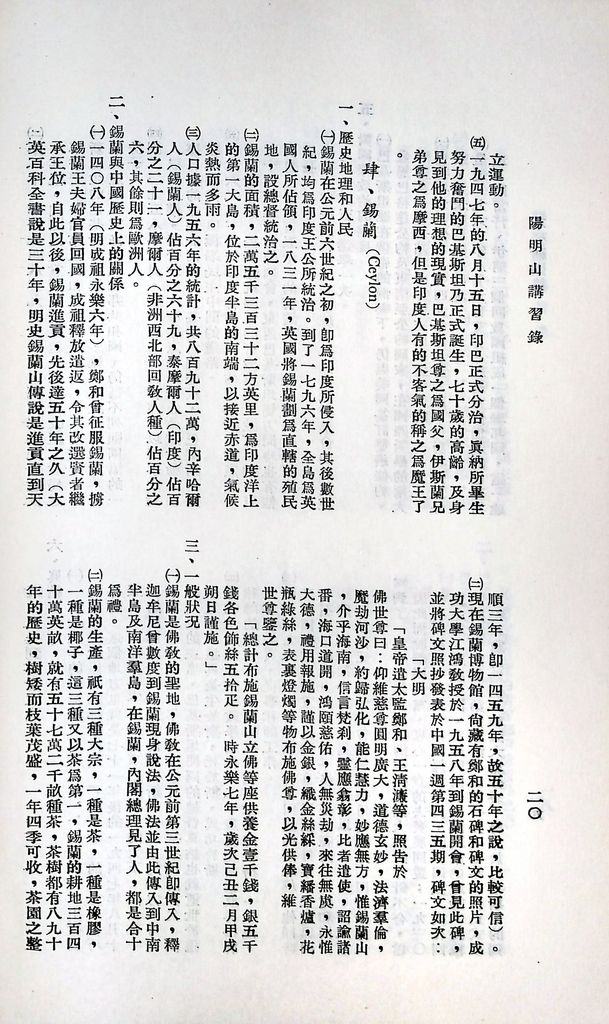 陽明山講習錄
二〇
立運動。
㈤一九四七年的八月十五日，印巴正式分治，眞納所畢生
努力奮鬥的巴基斯坦乃正式誕生，七十歲的高齡，及身
見到他的理想的現實，巴基斯坦尊之爲國父，伊斯蘭兄
弟尊之爲摩西，但是印度人有的不客氣的稱之爲魔王了
。
肆、錫蘭（Ceylon）
一、歷史地理和人民
㈠錫蘭在公元前六世紀之初，卽爲印度所侵入，其後數世
紀，均爲印度王公所統治。到了一七九六年，全島爲英
國人所佔領，一八三一年，英國將錫蘭劃爲直轄的殖民
地，設總督統治之。
㈡錫蘭的面積，二萬五千三百三十二方英里，爲印度洋上
的第一大島，位於印度半島的南端，以接近赤道，氣候
炎熱而多雨。
㈢人口據一九五六年的統計，共八百九十二萬，內辛哈爾
人（錫蘭人）佔百分之六十九，泰摩爾人（印度）佔百
分之二十一，摩爾人（非洲西北部回敎人種）佔百分之
六，其餘則爲歐洲人。
二、錫蘭與中國歷史上的關係
㈠一四〇八年（明成祖永樂六年），鄭和曾征服錫蘭，擄
錫蘭王夫婦官員回國，成祖釋放遣返，令其改選賢者繼
承王位，自此以後，錫蘭進貢，先後達五十年之久（大
英百科全書說是三十年，明史錫蘭山傳說是進貢直到天
順三年，卽一四五九年，故五十年之說，比較可信）。
㈡現在錫蘭博物館，尙藏有鄭和的石碑和碑文的照片，成
功大學江鴻敎授於一九五八年到錫蘭開會，曾見此碑，
並將碑文照抄發表於中國一週第四三五期，碑文如次：
「大明
「皇帝遣太監鄭和、王清濂等，照告於
佛世尊曰：仰維慈尊圓明廣大，道德玄妙，法濟羣倫，
魔劫河沙，約歸弘化，能仁慧力，妙應無方，惟錫蘭山
，介乎海南，信言梵刹，靈應翕彰，比者遣使，詔諭諸
番，海口道開，鴻頤慈佑，人無災劫，來往無虞，永惟
大德，禮用報施，謹以金銀，織金絲綵，寶繙香爐，花
瓶綠絲，表裏燈燭等物布施佛尊，以光供俸，維
世尊鑒之。
「總計布施錫蘭山立佛等座供養金壹千錢，銀五千
錢各色飾絲五拾疋。　時永樂七年，歲次己丑二月甲戌
朔日謹施。」
三、一般狀況
㈠錫蘭是佛敎的聖地，佛敎在公元前第三世紀卽傳入，釋
迦牟尼曾數度到錫蘭現身說法，佛法並由此傳入到中南
半島及南洋羣島，在錫蘭，內閣總理見了人，都是合十
爲禮。
㈡錫蘭的生產，祇有三種大宗，一種是茶，一種是橡膠，
一種是椰子，這三種又以茶爲第一，錫蘭的耕地三百四
十萬英畝，就有五十七萬二千畝種茶，茶樹都有八九十
年的歷史，樹矮而枝葉茂盛，一年四季可收，茶園之整